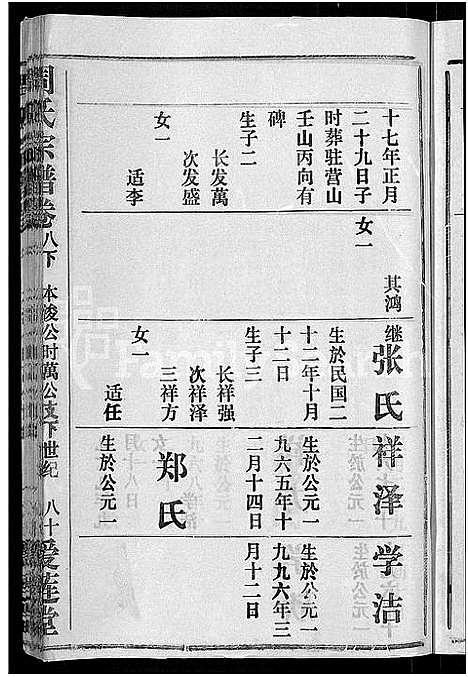 十七年正月
二十九日子
时葬驻营山
壬山丙向有
碑
生子二
长发萬
次发盛
女一
适李
女一
其鸿
继张氏
生於民国二
十二年十月
十二日
生子三
长祥强
次祥泽
三祥方
女一
适任
祥泽
生於公元一
九六五年十
二月十四日
郑氏
生於公元一
学洁
生於公元一
九九六年三
月十二日
周氏宗谱卷八下
本浚公时萬公支下世纪
八十
爱莲堂